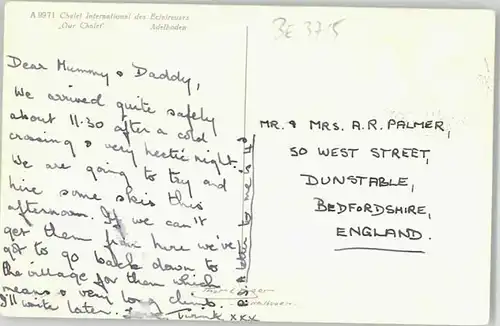 A 9971 Chalet International des Eclaireuses
„Our Chalet" Adelboden
BE 3715
Dear Mummy & Daddy,
We arrived quite safely
about 11.30 after a cold
crossing & very hectic night.
We are going to try and
hire some skis this
afternoon. If we can't
get them from here we've
got to go back down to
the village for them which
means a very long climb.
I'll write later.
xxx
P.S. a letter to me is 4d
MR. & MRS. A.R. PALMER,
50 WEST STREET,
DUNSTABLE,
BEDFORDSHIRE,
ENGLAND.